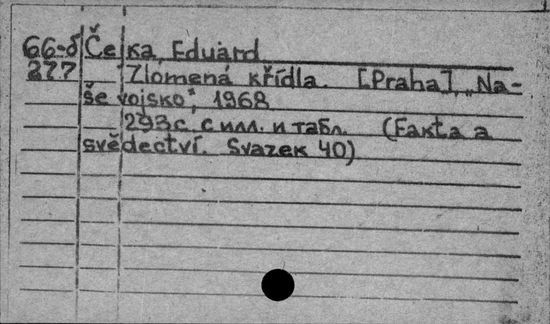 66-5 Čejka, Eduard
277 Zlomená křídla. [Praha], „Na-
še vojsko“, 1968
293 с. с илл. и табл. (Fakta a
svědectví. Svazek 40)